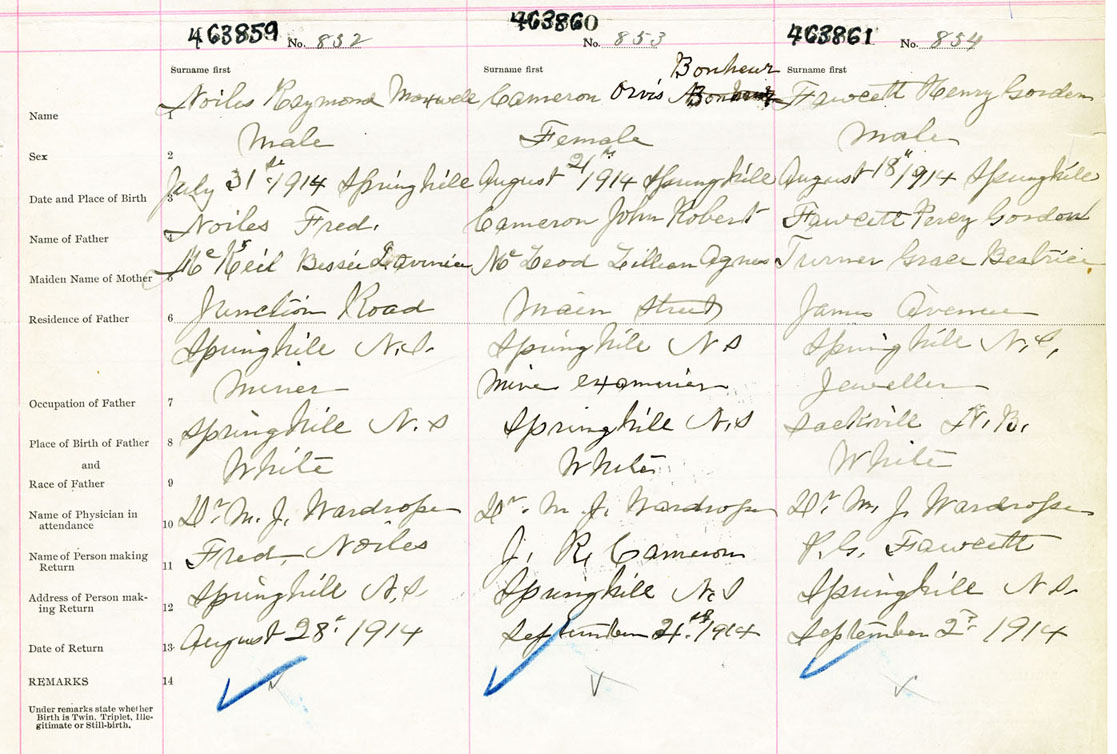 463859 No. 832 463860 No. 853 463861 No. 834
Surname first Surname first Bonheur Surname first
Name 1 Noiles Raymond Maxwell Cameron Orvis Fawcett Henry Gordon
Sex 2 Male Female Male
Date and Place of Birth 3 July 31st 1914 Springhill August 21st 1914 Springhill August 18th 1914 Springhill
Name of Father 4 Noiles Fred. Cameron John Robert Fawcett Percy Gordon
Maiden Name of Mother 5 McKeil Bessie Lavinia McLeod Lillian Agnes Turner Grace Beatrice
Residence of Father 6 Junction Road Main Street James Avenue
Springhill N.S. Springhill N S Springhill N.S.
Occupation of Father 7 Miner Mine examiner Jeweller
Place of Birth of Father 8 Springhill N.S Springhill N.S Sackville N.B.
and
Race of Father 9 White White White
Name of Physician in attendance 10 Dr. M. J. Wardrope Dr. M. J. Wardrope Dr. M. J. Wardrope
Name of Person making Return 11 Fred. Noiles J. R. Cameron P. G. Fawcett
Address of Person making Return 12 Springhill N.S. Springhill N.S Springhill N.S.
Date of Return 13 August 28th 1914 September 1914 September 2nd 1914
REMARKS 14
Under remarks state whether
Birth is Twin, Triplet, Ille-
gitimate or Still-birth.